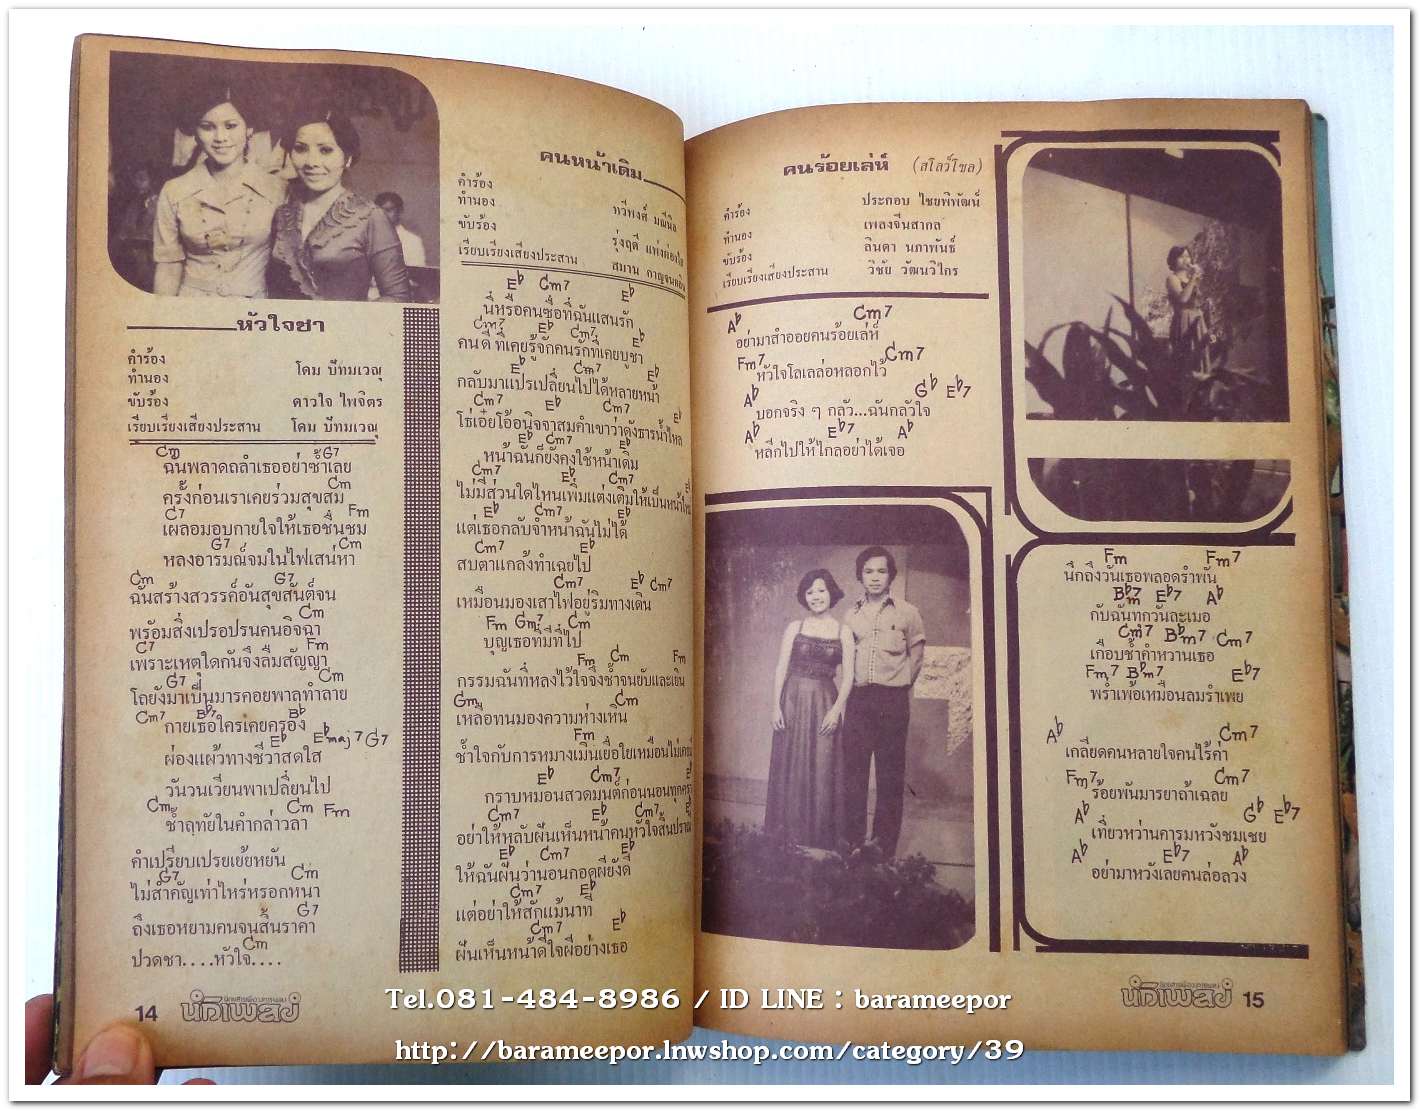 หัวใจชา
คำร้อง
ทำนอง
โดม ปัทมเวณุ
ขับร้อง ดาวใจ ไพจิตร
เรียบเรียงเสียงประสาน โดม ปัทมเวณุ
Cm G7
ฉันพลาดถลำเธออย่าซ้ำเลย
Cm
ครั้งก่อนเราเคยร่วมสุขสม
C7 Fm
เผลอมอบกายใจให้เธอชื่นชม
G7 Cm
หลงอารมณ์จมในไฟเสน่หา
Cm G7
ฉันสร้างสวรรค์อันสุขสันต์จน
Cm
พร้อมสิ่งเปรอปรนคนอิจฉา
C7 Fm
เพราะเหตุใดกันจึงลืมสัญญา
G7 Cm
ไถยังมาเป็นมารคอยพาลทำลาย
Cm7 Bb7 Bb
กายเธอใครเคยครอง
Eb Ebmaj7 G7
ผ่องแผ้วทางชีวาสดใส
วันวนเวียนพาเปลี่ยนไป
Cm Cm Fm
ช้ำฤทัยในคำกล่าวลา
คำเปรียบเปรยเย้ยหยัน
G7 Cm
ไม่สำคัญเท่าไหร่หรอกหนา
G7
ถึงเธอหยามคนจนสิ้นราคา
Cm
ปวดชา....หัวใจ....
14
คนหน้าเดิม
คำร้อง
ทำนอง ทวีพงศ์ มณีนิล
ขับร้อง
เรียบเรียงเสียงประสาน สมาน
Eb Cm7 Eb
นี่หรือคนซื่อที่ฉันแสนรัก
Cm7 Eb Cm7 Eb
คนดี ที่เคยรู้จักคนรักที่เคยบูชา
Eb Cm7 Eb
กลับมาแปรเปลี่ยนไปได้หลายหน้า
Cm7 Eb Cm7 Eb
โธ่เอ๋ยโอ้อนิจจาสมคำเขาว่าดังธารน้ำไหล
Eb Cm7 Eb
หน้าฉันก็ยังคงใช้หน้าเดิม
Cm7 Eb Cm7 E
ไม่มีส่วนใดไหนเพิ่มแต่งเติมให้เป็นหน้าใหม่
Eb Cm7 Eb
แต่เธอกลับจำหน้าฉันไม่ได้
Cm7 Eb
สบตาแกล้งทำเฉยไป
Cm7 Eb Cm7
เหมือนมองเสาไฟอยู่ริมทางเดิน
Fm Gm7 Cm
บุญเธอที่มีที่ไป
Fm Cm Fm
กรรมฉันที่หลงไว้ใจจึงช้ำจนยับและเยิน
Gm Cm
เหลือทนมองความห่างเหิน
Fm
ช้ำใจกับการหมางเมินเยื่อใยเหมือนไม่เคย
Eb Cm7 Eb
กราบหมอนสวดมนต์ก่อนนอนทุกครา
Cm7 Eb Cm7 Eb
อย่าให้หลับฝันเห็นหน้าคนหัวใจสิ้นปรานี
Eb Cm7 Eb
ให้ฉันฝันว่านอนกอดผียังดี
Cm7 Eb
แต่อย่าให้สักแม้นาที
Cm7 Eb
ฝันเห็นหน้าดีใจผีอย่างเธอ
คนร้อยเล่ห์ (สโลว์โซล)
คำร้อง ประกอบ ไชยพิพัฒน์
ทำนอง เพลงจีนสากล
ขับร้อง ลินดา นภาพันธ์
เรียบเรียงเสียงประสาน วิชัย วัฒนวิไกร
Ab Cm7
อย่ามาสำออยคนร้อยเล่ห์
Fm7 Cm7
หัวใจโลเลล่อหลอกไว้
Ab Gb Eb7
บอกจริง ๆ กลัว...ฉันกลัวใจ
Ab Eb7 Ab
หลีกไปให้ไกลอย่าได้เจอ
Fm Fm7
นึกถึงวันเธอพลอดรำพัน
Bbm7 Eb7 Ab
กับฉันทุกวันละเมอ
Cm7 Bbm7 Cm7
เกือบช้ำคำหวานเธอ
Fm7 Bbm7 Eb7
พร่ำเพ้อเหมือนลมรำเพย
Ab Cm7
เกลียดคนหลายใจคนไร้ค่า
Fm7 Cm7
ร้อยพันมารยาถ้าเฉลย
Ab Gb Eb7
เที่ยวหว่านคารมหวังชมเชย
Ab Eb7 Ab
อย่ามาหวังเลยคนล่อลวง
15
Tel.081-484-8986 / ID LINE : barameepor
http://barameepor.lnwshop.com/category/39